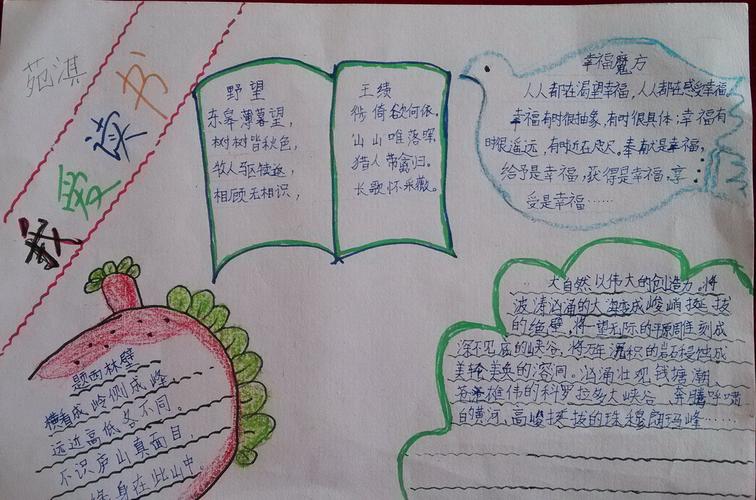 苑淇
我爱读书
野望
东皋薄暮望,
树树皆秋色,
牧人驱犊返,
相顾无相识,
王绩
徙倚欲何依。
山山唯落晖
猎人带禽归。
长歌怀采薇。
幸福魔方
人人都在渴望幸福,人人都在感受幸福,
幸福有时很抽象,有时很具体;幸福有
时很遥远,有时近在咫尺。奉献是幸福,
给予是幸福,获得是幸福,享
受是幸福……
题西林壁
横看成岭侧成峰,
远近高低各不同。
不识庐山真面目,
身在此山中。
大自然以伟大的创造力,将
波涛汹涌的大海变成峻峭挺拔
的绝壁,将一望无际的平原雕刻成
深不见底的峡谷,将万年沉积的岩石侵蚀成
美轮美奂的溶洞。汹涌壮观钱塘潮、
苍茫雄伟的科罗拉多大峡谷、奔腾呼啸
的黄河、高峻挺拔的珠穆朗玛峰……